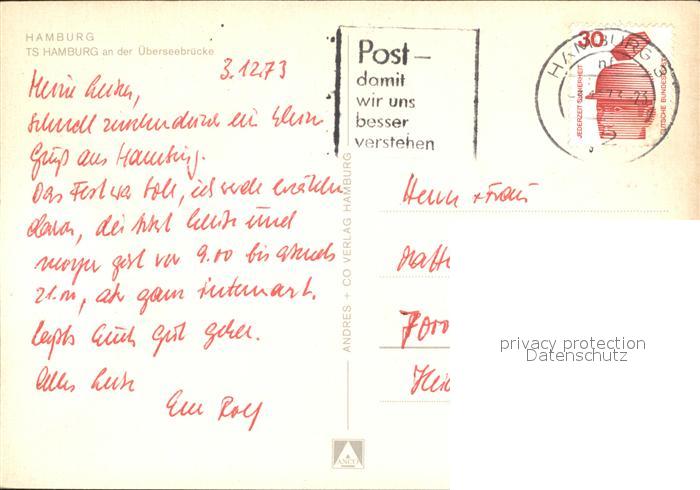 HAMBURG
TS HAMBURG an der Überseebrücke
3.12.73
Meine Lieben,
schnell zwischendurch ein kleiner
Gruß aus Hamburg.
Das Fest war toll, ich werde erzählen
davon, die Sitzt heute und
morgen geht von 9.00 bis abends
21.00, aber ganz interessant.
Laßt's Euch gut gehen.
Alles Liebe
Euer Rolf
ANDRES + CO VERLAG HAMBURG
ANCO
Post –
damit
wir uns
besser
verstehen
HAMBURG
30
JEDERZEIT SICHERHEIT
DEUTSCHE BUNDESPOST
Herrn + Frau
7000
privacy protection
Datenschutz